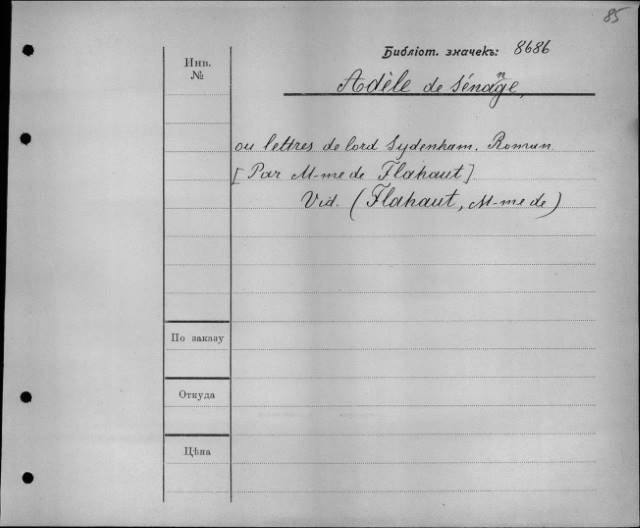 85
Библіот. значекъ: 8686
Инв.
№
Adèle de Sénange,
ou lettres de lord Sydenham. Roman
[Par M-me de Flahaut]
Vid. (Flahaut, M-me de)
По заказу
Откуда
Цѣна